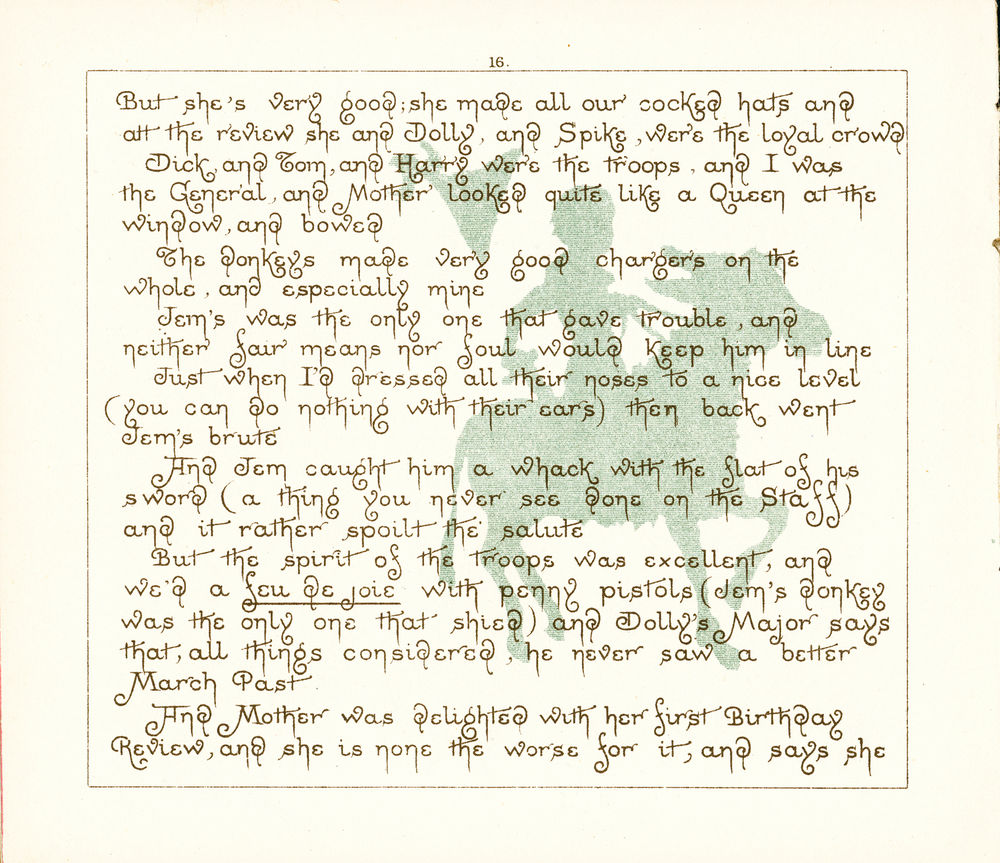 16.
But she's very good; she made all our cocked hats and
att the review she and Dolly, and Spike, were the loyal crowd
Dick, and Tom, and Harry were the troops, and I was
the General, and Mother looked quite like a Queen at the
window, and bowed
The donkeys made very good chargers on the
whole, and especially mine
Jem's was the only one that gave trouble, and
neither fair means nor foul would keep him in line
Just when I'd dressed all their noses to a nice level
(you can do nothing with their ears) then back went
Jem's brute
And Jem caught him a whack with the flat of his
sword (a thing you never see done on the Staff)
and it rather spoilt the salute
But the spirit of the troops was excellent, and
we'd a feu de joie with penny pistols (Jem's donkey
was the only one that shied) and Dolly's Major says
that, all things considered, he never saw a better
March Past
And Mother was delighted with her first Birthday
Review, and she is none the worse for it, and says she